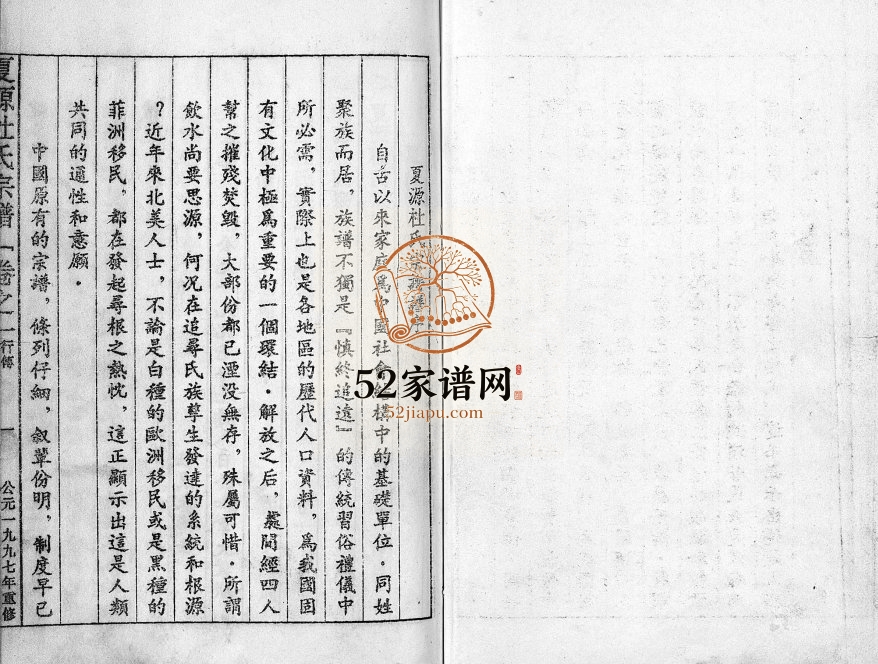 夏源杜氏
自古以來家庭為中國社會結構中的基礎單位．同姓
聚族而居，族譜不獨是『慎終追遠』的傳統習俗禮儀中
所必需，實際上也是各地區的歷代人口資料，為我國固
有文化中極為重要的一個環結．解放之后，處間經四人
幫之摧殘焚毀，大部份都已湮没無存，殊屬可惜．所謂
飲水尚要思源，何况在追尋氏族孳生發達的系統和根源
？近年來北美人士，不論是白種的歐洲移民或是黑種的
菲洲移民，都在發起尋根之熱忱，這正顯示出這是人類
共同的通性和意願．
中國原有的宗譜，條列仔細，叙輩份明，制度早已
夏源杜氏宗譜 卷之一 行傳 一 公元一九九七年重修
52家谱网
52jiapu.com